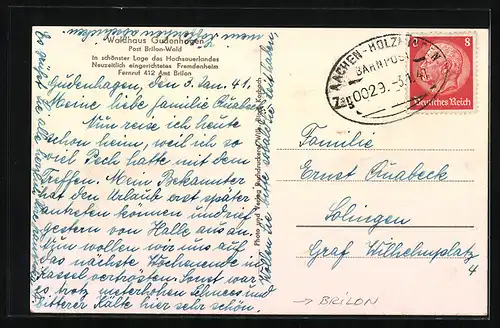 Waldhaus Gudenhagen
Post Brilon-Wald
In schönster Lage des Hochsauerlandes
Neuzeitlich eingerichtetes Fremdenheim
Fernruf 412 Amt Brilon
Gudenhagen, den 3. Jan. 41.
Meine liebe Familie Quabeck!
Nun reise ich heute
schon heim, weil ich so
viel Pech hatte mit dem
Treffen. Mein Bekannter
hat den Urlaub erst später
antreten können und rief
gestern von Halle aus an.
Nun wollen wir uns auf
das nächste Wochenende in
Kassel vertrösten. Sonst war
es trotz meterhohen Schnees und
bitterer Kälte hier sehr schön.
AACHEN-HOLZ
BAHNPOST
Zug 0029
8
Deutsches Reich
Familie
Ernst Quabeck
Solingen
Graf Wilhelmplatz
4
→ BRILON